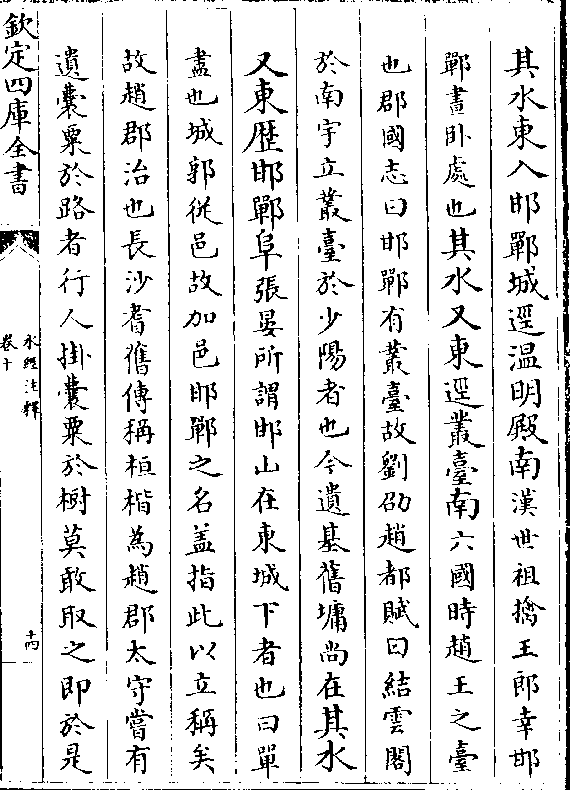 其水東入邯鄲城逕温明殿南漢世祖擒王郎幸邯
鄲晝卧處也其水又東逕叢臺南六國時趙王之臺
也郡國志曰邯鄲有叢臺故劉邵趙都賦曰結雲閣
於南宇立叢臺於少陽者也今遺基舊墉尚在其水
又東歴邯鄲阜張晏所謂邯山在東城下者也曰單
盡也城郭從邑故加邑邯鄲之名盖指此以立稱矣
故趙郡治也長沙耆舊傳稱桓楷為趙郡太守嘗有
遺囊粟於路者行人掛囊粟於樹莫敢取之即於是
欽定四庫全書
水經注釋
卷十
十四